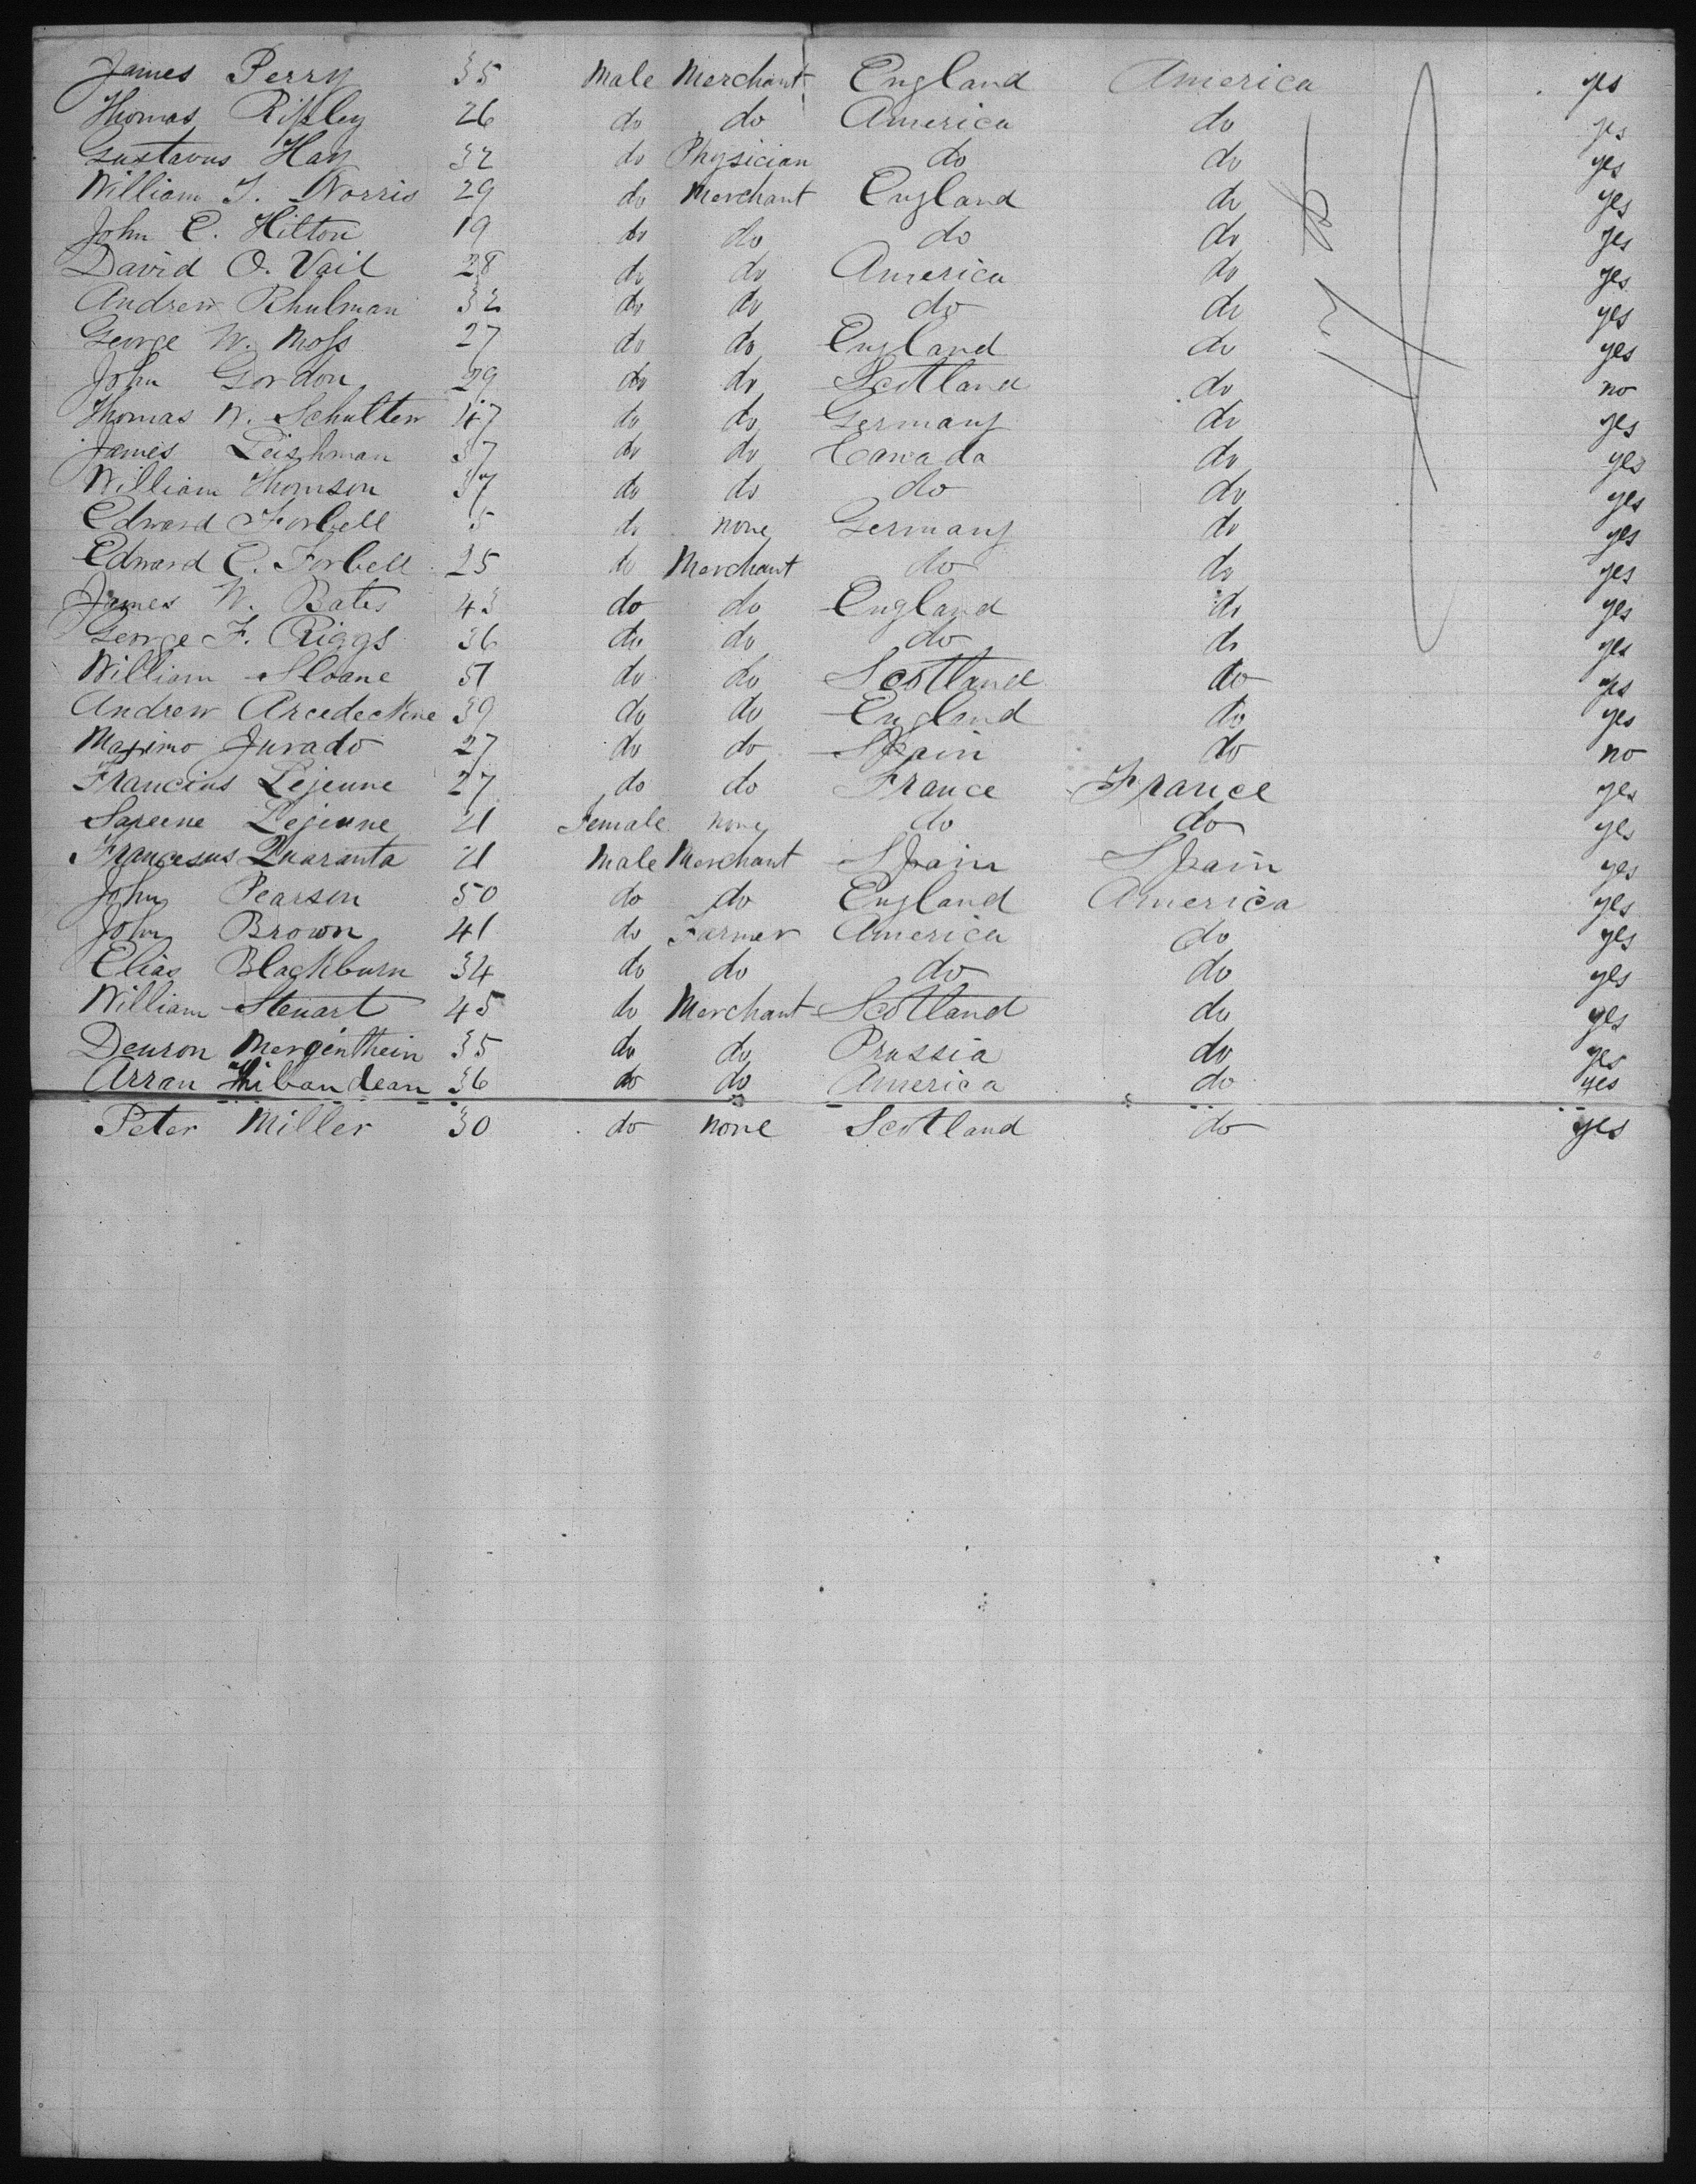 James Perry 35 Male Merchant England America yes
Thomas Ripley 26 do do America do yes
Gustavus Hay 32 do Physician do do yes
William J. Norris 29 do Merchant England do yes
John C. Hilton 19 do do do do yes
David O. Vail 28 do do America do yes
Andrew Rhulman 32 do do do do yes
George W. Moss 27 do do England do yes
John Gordon 29 do do Scotland do no
Thomas W. Schulten 47 do do Germany do yes
James Leishman 37 do do Canada do yes
William Thomson 37 do do do do yes
Edward Forbell 5 do none Germany do yes
Edward C. Forbell 25 do Merchant do do yes
James W. Bates 43 do do England do yes
George F. Riggs 36 do do do do yes
William Sloane 51 do do Scotland do yes
Andrew Arcedeckne 39 do do England do yes
Maximo Jurado 27 do do Spain do no
Francius Lejeune 27 do do France France yes
Lejeune 21 Female none do do yes
Quaranta 21 Male Merchant Spain Spain yes
John Pearson 50 do do England America yes
John Brown 41 do Farmer America do yes
Elias Blackburn 34 do do do do yes
William Stewart 45 do Merchant Scotland do yes
Mergenthein 35 do do Prussia do yes
Arran 36 do do America do yes
Peter Miller 30 do none Scotland do yes